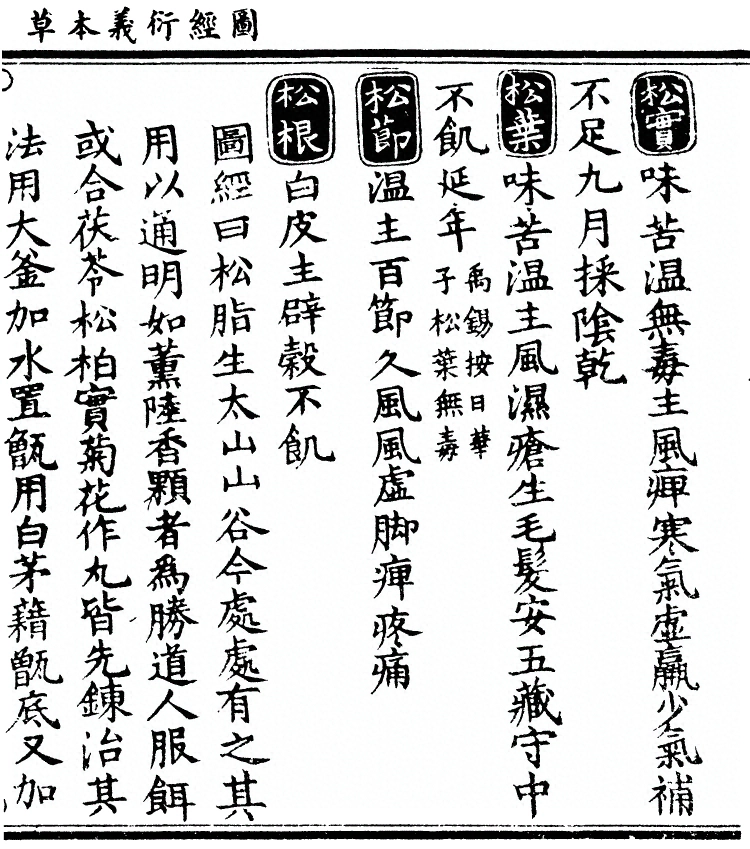 圖經衍義本草
松實 味苦溫無毒主風痺寒氣虛羸少氣補
不足九月採陰乾
松葉 味苦溫主風濕瘡生毛髮安五藏守中
不飢延年 禹錫按日華
子松葉無毒
松節 溫主百節久風風虛脚痺疼痛
松根 白皮主辟穀不飢
圖經曰松脂生太山山谷今處處有之其
用以通明如薰陸香顆者為勝道人服餌
或合茯苓松柏實菊花作丸皆先鍊治其
法用大釜加水置甑用白茅藉甑底又加